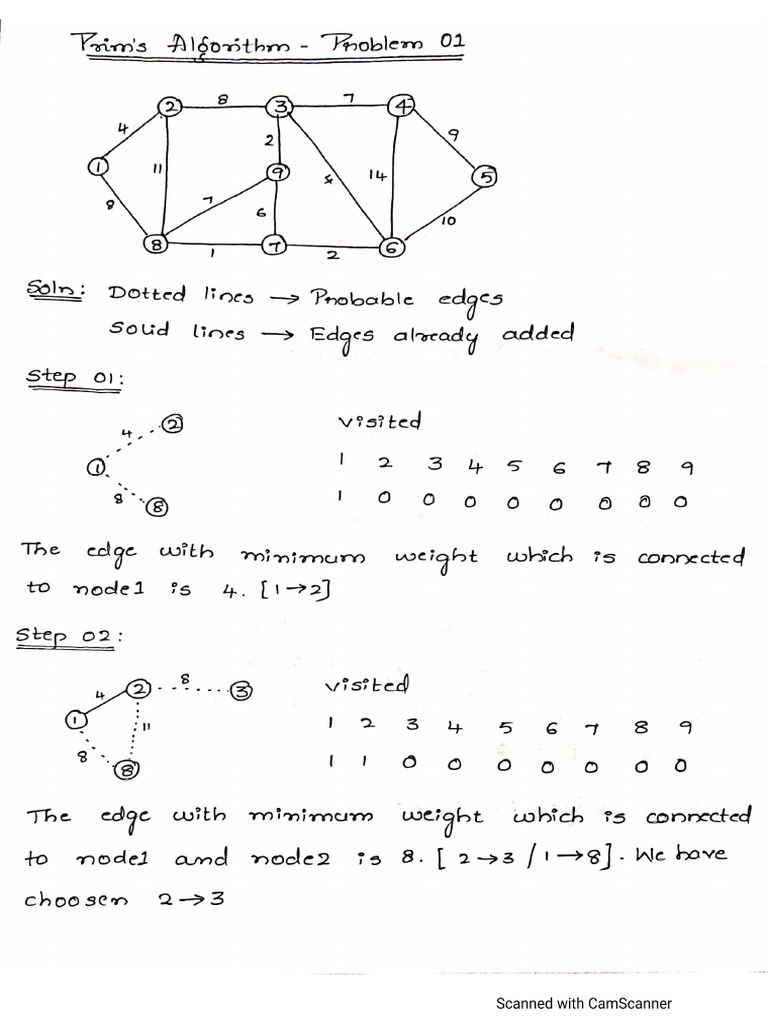 Prim's Algorithm - Problem 01
2 8 3 7 4
4 11 2 4 14 9
1 9 5
8 7 6 10
8 1 7 2 6
Soln: Dotted lines → Probable edges
Solid lines → Edges already added
Step 01:
4 2
1
8 8
visited
1 2 3 4 5 6 7 8 9
1 0 0 0 0 0 0 0 0
The edge with minimum weight which is connected
to node1 is 4. [1→2]
Step 02:
4 2 8 3
1 11
8 8
visited
1 2 3 4 5 6 7 8 9
1 1 0 0 0 0 0 0 0
The edge with minimum weight which is connected
to node1 and node2 is 8. [2→3 / 1→8]. We have
choosen 2→3
Scanned with CamScanner